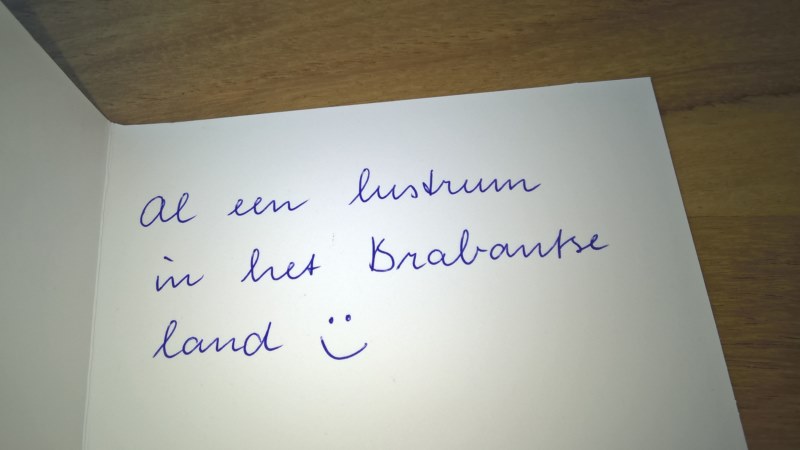 Al een lustrum
in het Brabantse
land